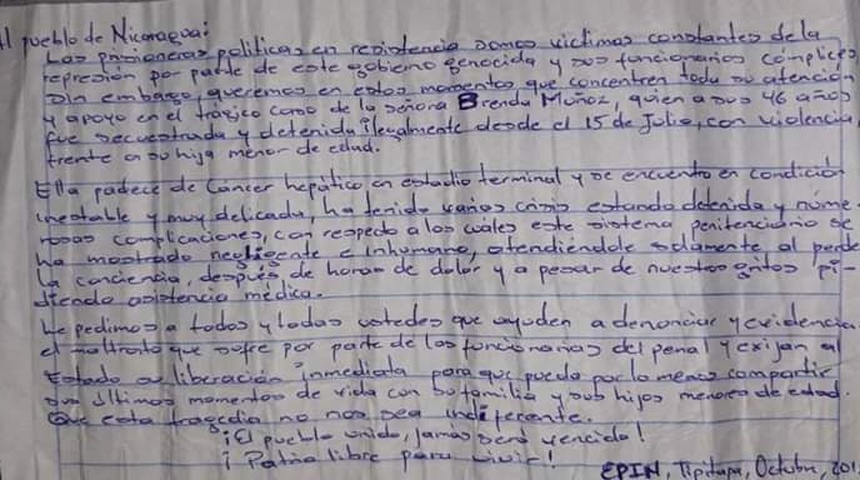 Al pueblo de Nicaragua:
Las prisioneras políticas en resistencia somos víctimas constantes de la
represión por parte de este gobierno genocida y sus funcionarios cómplices,
sin embargo, queremos en estos momentos que concentren toda su atención
y apoyo en el trágico caso de la señora Brenda Muñoz, quien a sus 46 años
fue secuestrada y detenida ilegalmente desde el 15 de Julio, con violencia
frente a su hija menor de edad.
Ella padece de Cáncer hepático en estadio terminal y se encuentra en condición
inestable y muy delicada, ha tenido varias crisis estando detenida y nume
rosas complicaciones, con respecto a los cuales este sistema penitenciario se
ha mostrado negligente e inhumano, atendiéndole solamente al perder
la conciencia, después de horas de dolor y a pesar de nuestros gritos pi-
diendo asistencia médica.
Le pedimos a todos y todas ustedes que ayuden a denunciar y evidenciar
el maltrato que sufre por parte de los funcionarios del penal y exijan al
Estado su liberación inmediata para que pueda por lo menos compartir
sus últimos momentos de vida con su familia y sus hijos menores de edad.
Que esta tragedia no nos sea indiferente.
¡El pueblo unido, jamás será vencido!
¡Patria libre para vivir!
EPIN, Tipitapa, Octubre, 201